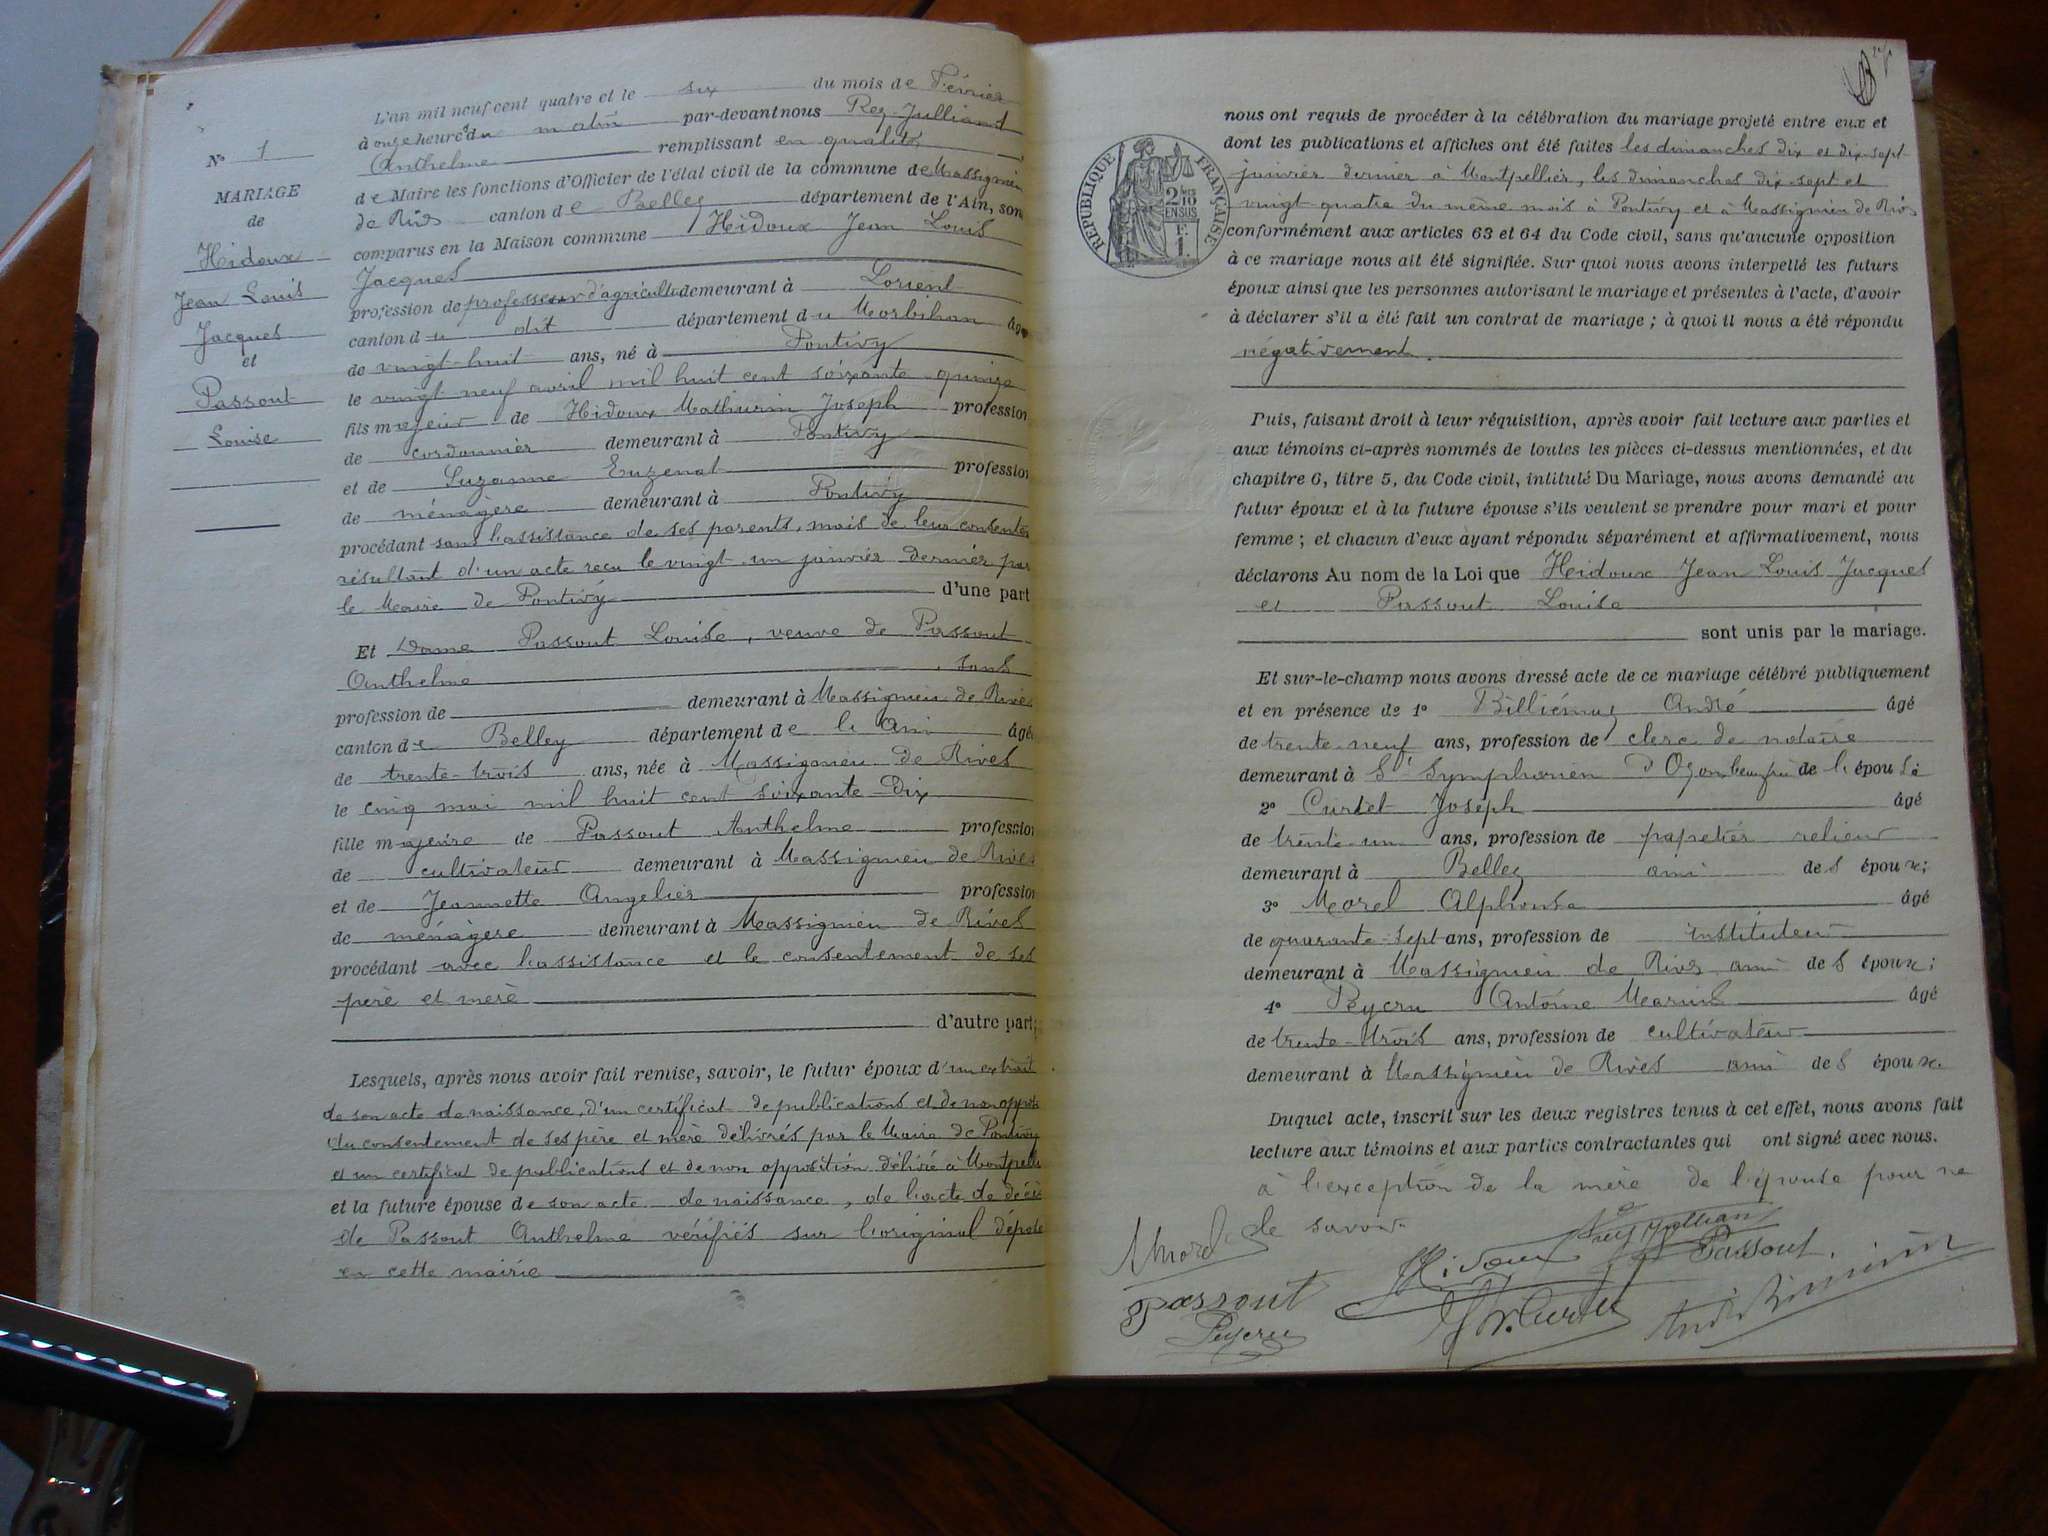 N° 1
MARIAGE
de
Hidoux
Jean Louis
Jacques
et
Passout
Louise
L'an mil neuf cent quatre et le six du mois de Février
à onze heures du matin par-devant nous Rey-Julliand
Anthelme remplissant en qualité
de Maire les fonctions d'Officier de l'état civil de la commune de Massignieu
de Rives canton de Belley département de l'Ain, sont
comparus en la Maison commune Hidoux Jean Louis
Jacques
profession de professeur d'agriculture demeurant à Lorient
canton du dit département du Morbihan âgé
de vingt-huit ans, né à Pontivy
le vingt neuf avril mil huit cent soixante quinze
fils majeur de Hidoux Mathurin Joseph profession
de cordonnier demeurant à Pontivy
et de Suzanne Euzenat profession
de ménagère demeurant à Pontivy
procédant sans l'assistance de ses parents, mais de leur consentem
résultant d'un acte reçu le vingt-un janvier dernier par
le Maire de Pontivy d'une part
Et Dame Passout Louise, veuve de Passout
Anthelme, sans
profession de demeurant à Massignieu de Rives
canton de Belley département de l'Ain âgée
de trente-trois ans, née à Massignieu de Rives
le cinq mai mil huit cent soixante-Dix
fille majeure de Passout Anthelme profession
de cultivateur demeurant à Massignieu de Rives
et de Jeannette Angelier profession
de ménagère demeurant à Massignieu de Rives
procédant avec l'assistance et le consentement de ses
père et mère
d'autre part;
Lesquels, après nous avoir fait remise, savoir, le futur époux d'un extrait
de son acte de naissance, d'un certificat de publications et de non opposi
du consentement de ses père et mère délivrés par le Maire de Pontivy
et un certificat de publications et de non opposition délivré à Montpellier
et la future épouse de son acte de naissance, de l'acte de décès
de Passout Anthelme vérifiés sur l'original déposé
en cette mairie
RÉPUBLIQUE FRANÇAISE
2/10 EN SUS
1 F.
nous ont requis de procéder à la célébration du mariage projeté entre eux et
dont les publications et affiches ont été faites les dimanches dix et dix-sept
janvier dernier à Montpellier, les dimanches dix-sept et
vingt-quatre du même mois à Pontivy et à Massignieu de Rives
conformément aux articles 63 et 64 du Code civil, sans qu'aucune opposition
à ce mariage nous ait été signifiée. Sur quoi nous avons interpellé les futurs
époux ainsi que les personnes autorisant le mariage et présentes à l'acte, d'avoir
à déclarer s'il a été fait un contrat de mariage ; à quoi il nous a été répondu
négativement.
Puis, faisant droit à leur réquisition, après avoir fait lecture aux parties et
aux témoins ci-après nommés de toutes les pièces ci-dessus mentionnées, et du
chapitre 6, titre 5, du Code civil, intitulé Du Mariage, nous avons demandé au
futur époux et à la future épouse s'ils veulent se prendre pour mari et pour
femme ; et chacun d'eux ayant répondu séparément et affirmativement, nous
déclarons Au nom de la Loi que Hidoux Jean Louis Jacques
et Passout Louise
sont unis par le mariage.
Et sur-le-champ nous avons dressé acte de ce mariage célébré publiquement
et en présence de 1° Billiémaz André âgé
de trente-neuf ans, profession de clerc de notaire
demeurant à St Symphorien d'Ozon beau frère de l'épouse
2° Curtet Joseph âgé
de trente-un ans, profession de papetier relieur
demeurant à Belley ami des époux;
3° Morel Alphonse âgé
de quarante-sept ans, profession de instituteur
demeurant à Massignieu de Rives ami des époux;
4° Peycru Antoine Marius âgé
de trente-trois ans, profession de cultivateur
demeurant à Massignieu de Rives ami des époux.
Duquel acte, inscrit sur les deux registres tenus à cet effet, nous avons fait
lecture aux témoins et aux parties contractantes qui ont signé avec nous.
à l'exception de la mère de l'épouse pour ne
le savoir
AMorel Hidoux Rey Julliand Passout
Passout Curtet
Peycru